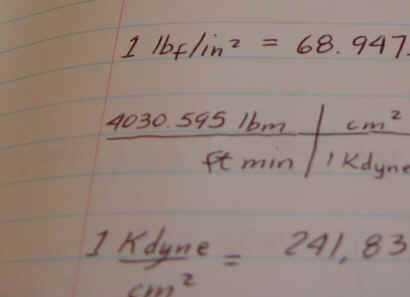 1 lbf/in² = 68.947
4030.595 lbm | cm²
ft min | 1 Kdyne
1 Kdyne = 241,83
cm²